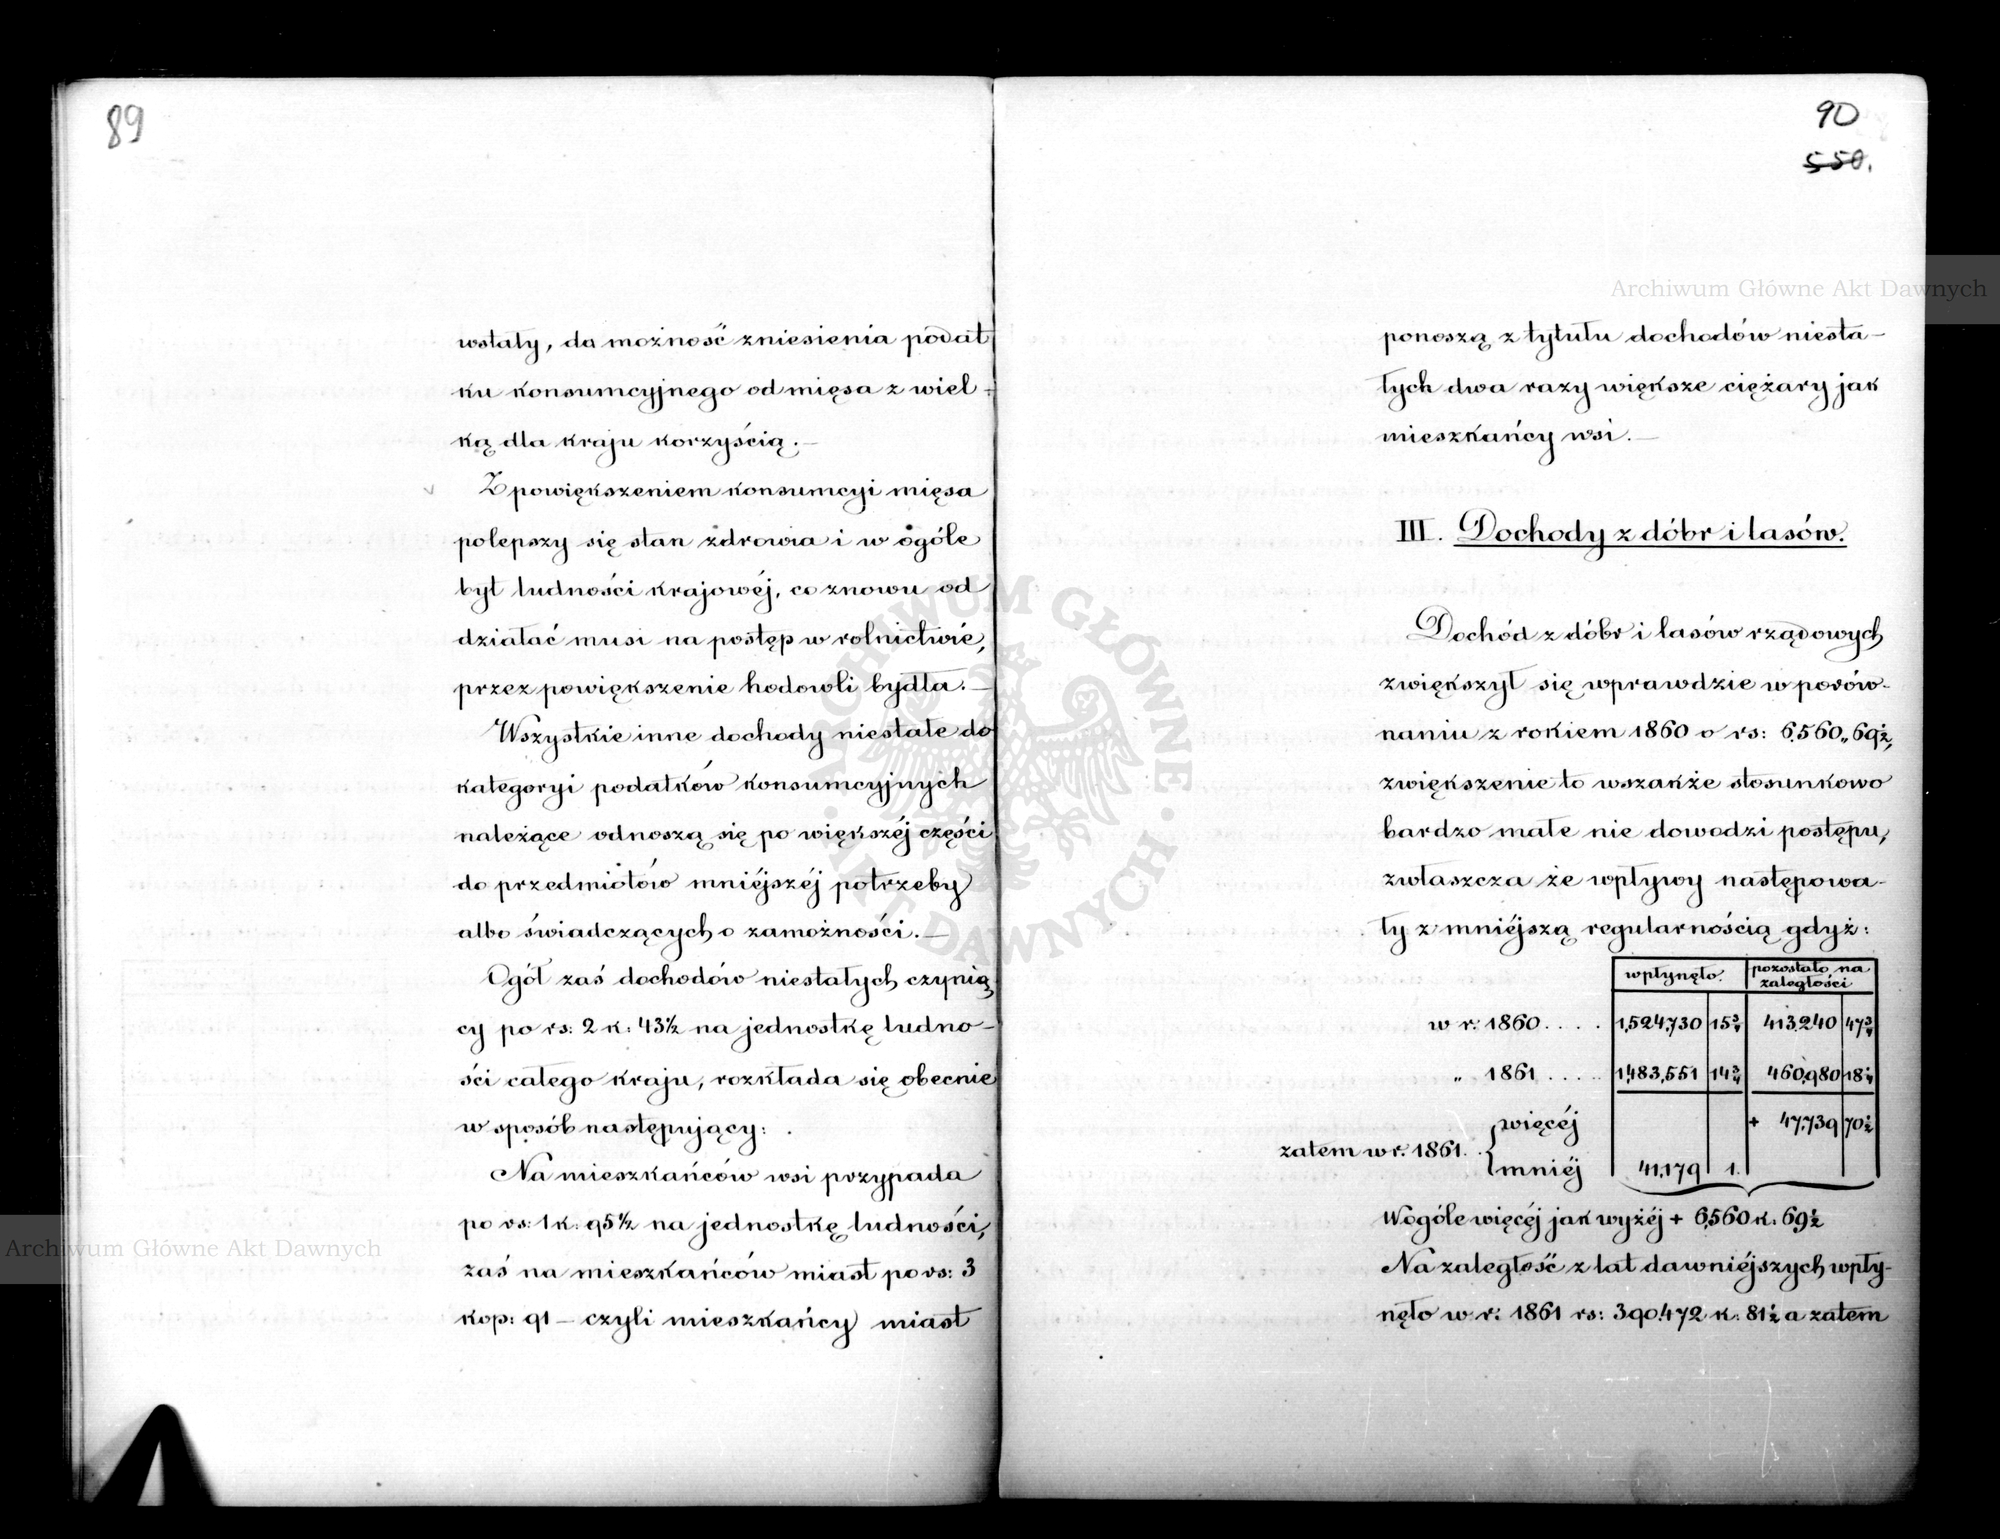 89
wstały, da możność zniesienia podat
ku konsumcyjnego od mięsa z wiel-
ką dla kraju korzyścią.—
Z powiększeniem konsumcyi mięsa
polepszy się stan zdrowia i w ogóle
byt ludności krajowéj, co znowu od
działać musi na postęp w rolnictwie,
przez powiększenie hodowli bydła.—
Wszystkie inne dochody niestałe do
kategoryi podatków konsumcyjnych
należące odnoszą się po większéj części
do przedmiotów mniéjszéj potrzeby
albo świadczących o zamożności.—
Ogół zaś dochodów niestałych czynią
cy po rs: 2 k: 43½ na jednostkę ludno-
ści całego kraju, rozkłada się obecnie
w sposób następujący:
Na mieszkańców wsi przypada
po rs: 1 k: 95½ na jednostkę ludności,
zaś na mieszkańców miast po rs: 3
kop: 91 — czyli mieszkańcy miast
90
550.
ponoszą z tytułu dochodów niesta-
łych dwa razy większe ciężary jak
mieszkańcy wsi.—
III. Dochody z dóbr i lasów.
Dochód z dóbr i lasów rządowych
zwiększył się wprawdzie w porów-
naniu z rokiem 1860 o rs: 6,560„69½,
zwiększenie to wszakże stosunkowo
bardzo małe nie dowodzi postępu,
zwłaszcza że wpływy następowa-
ły z mniéjszą regularnością gdyż:
wpłynęło. pozostało na
zaległości
w r: 1860.... 1,524,730 15¾ 413,240 47¾
„ 1861..... 1,483,551 14¾ 460,980 18¼
więcéj + 47,739 70½
zatem w r: 1861.
mniéj 41,179 1.
Wogóle więcéj jak wyżéj + 6,560 k: 69½
Na zaległość z lat dawniéjszych wpły-
nęło w r: 1861 rs: 390,472 k: 81½ a zatem
Archiwum Główne Akt Dawnych
Archiwum Główne Akt Dawnych
ARCHIWUM GŁÓWNE AKT DAWNYCH